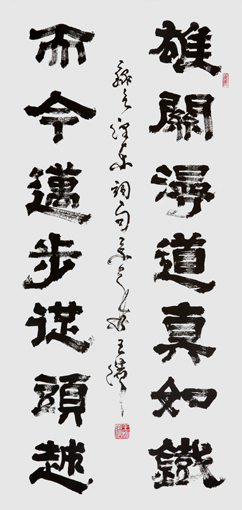 雄關漫道真如鐵
而今邁步從頭越
毛澤東詞句